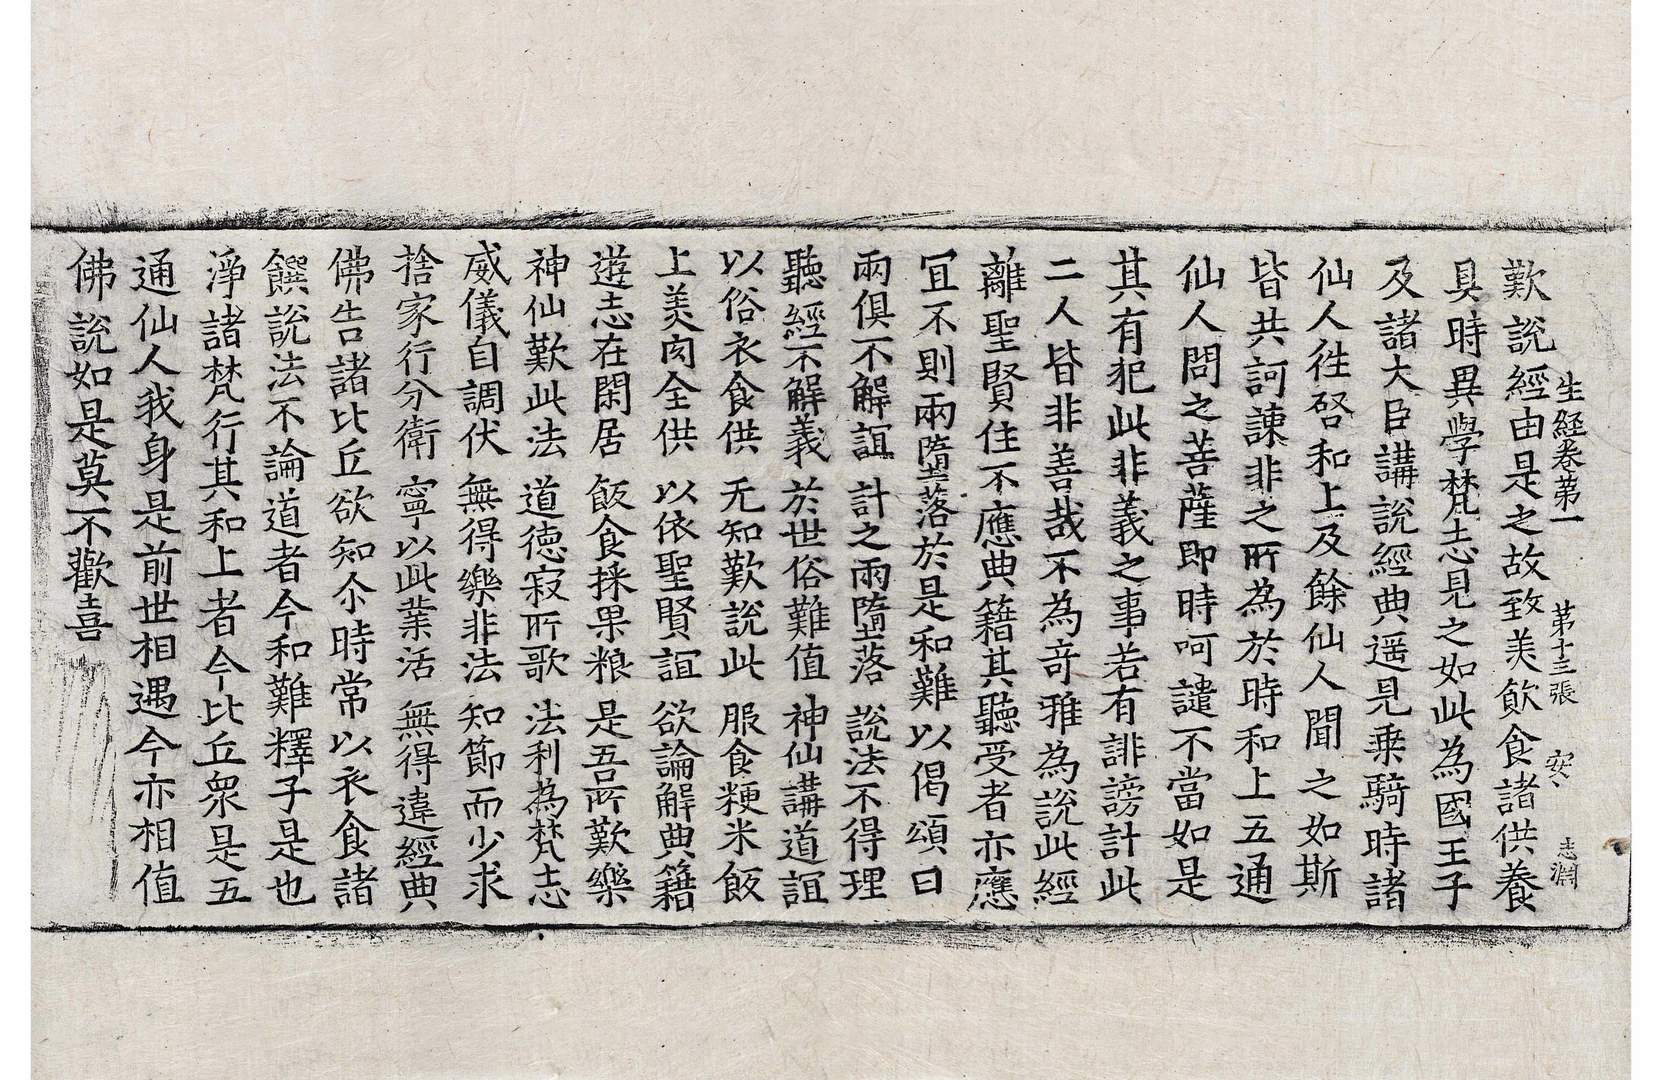 生経卷第一　第十三張　安、　志淵
歎說經由是之故致美飲食諸供養
具時異學梵志見之如此為國王子
及諸大臣講說經典遥見乗騎時諸
仙人徃啓和上及餘仙人聞之如斯
皆共訶諫非之所為於時和上五通
仙人問之菩薩即時呵譴不當如是
其有犯此非義之事若有誹謗計此
二人皆非善哉不為竒雅為說此經
離聖賢住不應典籍其聽受者亦應
冝不則兩墮落於是和難以偈頌曰
兩俱不解誼　計之兩墮落　說法不得理
聽經不解義　於世俗難值　神仙講道誼
以俗衣食供　无知歎說此　服食粳米飯
上美肉全供　以依聖賢誼　欲論解典籍
遊志在閑居　飯食採果粮　是吾所歎樂
神仙歎此法　道徳寂所歌　法利為梵志
威儀自調伏　無得樂非法　知節而少求
捨家行分衛　寧以此業活　無得違經典
佛告諸比丘欲知尒時常以衣食諸
饌說法不論道者今和難釋子是也
淨諸梵行其和上者今比丘衆是五
通仙人我身是前世相遇今亦相值
佛說如是莫不歡喜